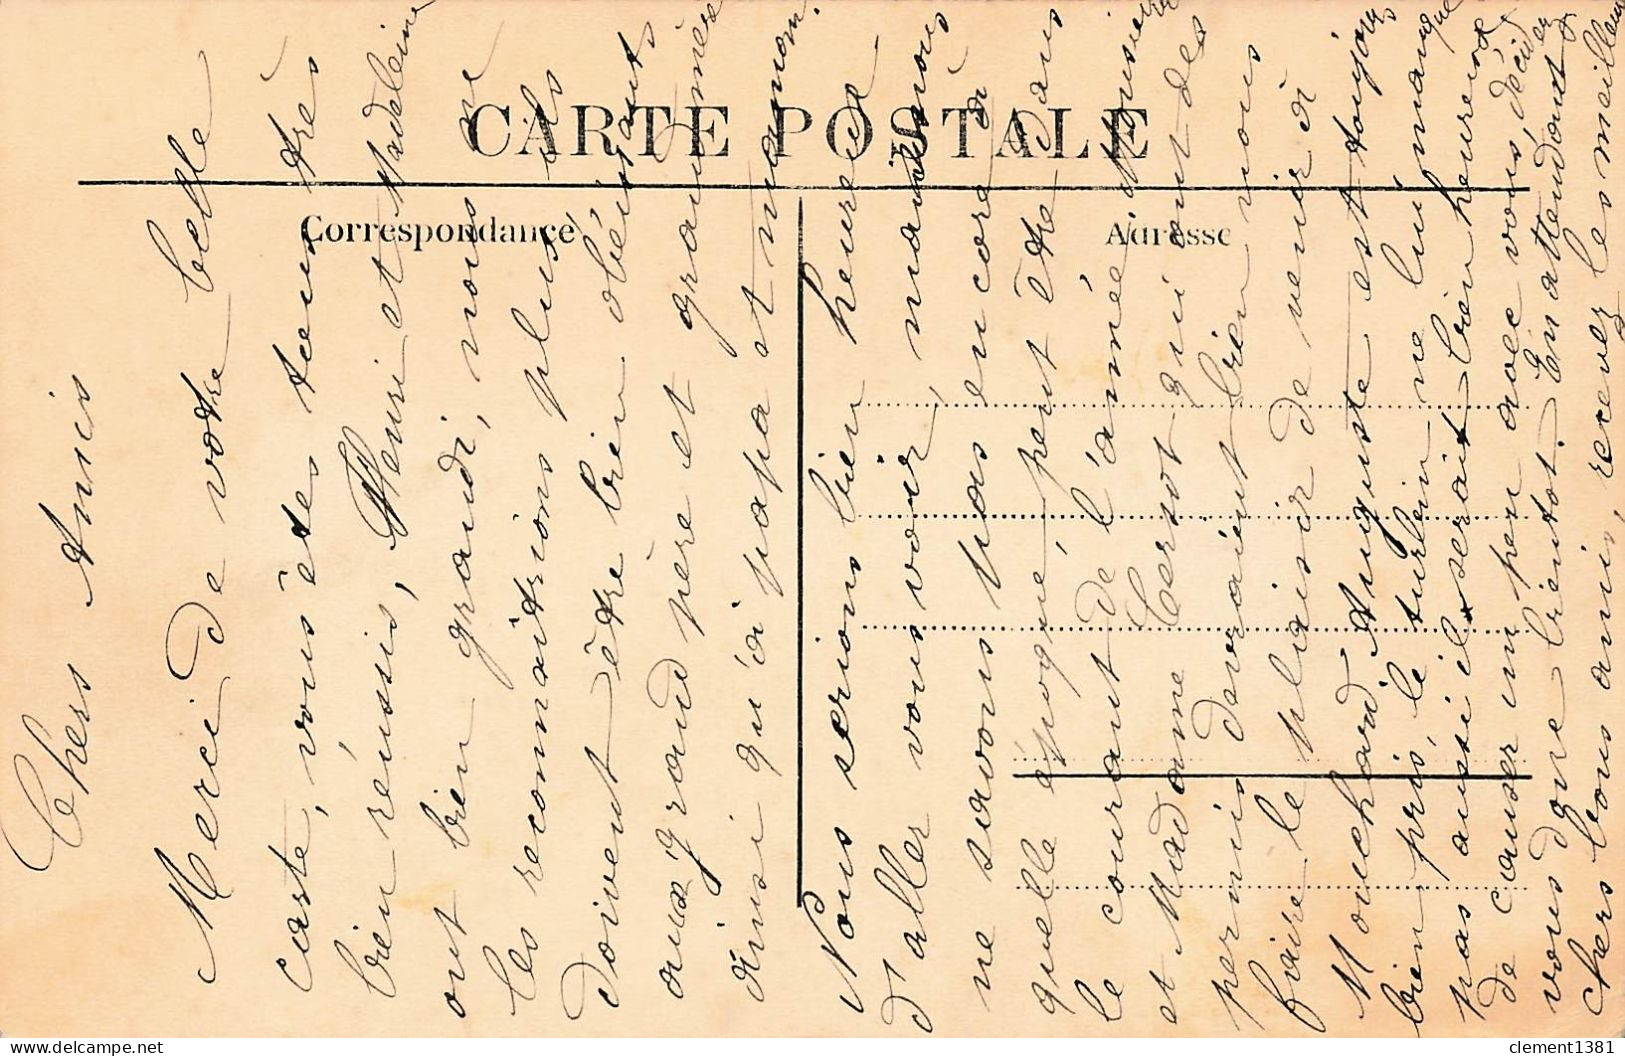 CARTE POSTALE
Correspondance
Adresse
Chers Amis
Merci de votre belle
carte, vous êtes tous très
bien réussis, Henri et Madeleine
ont bien grandi, nous ne
les reconnaitrions plus ils
doivent être bien obéissants
aux grand père et grand mère
ainsi qu'à papa et maman.
Nous serions bien heureux
d'aller vous voir, mais nous
ne savons pas encore à
quelle époque peut être dans
le courant de l'année Monsieur
et Madame Cersot qui ont des
permis devraient bien nous
faire le plaisir de venir ici
Mouchard Auguste est toujours
bien pris, le turbin ne lui manque
pas aussi il serait bien heureux
de causer un peu avec vous, décidez
vous donc bientôt. En attendant
chers bons amis, recevez les meilleurs
clement1381